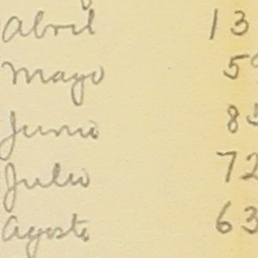 Abril 13
Mayo 59
Junio 85
Julio 72
Agosto 63